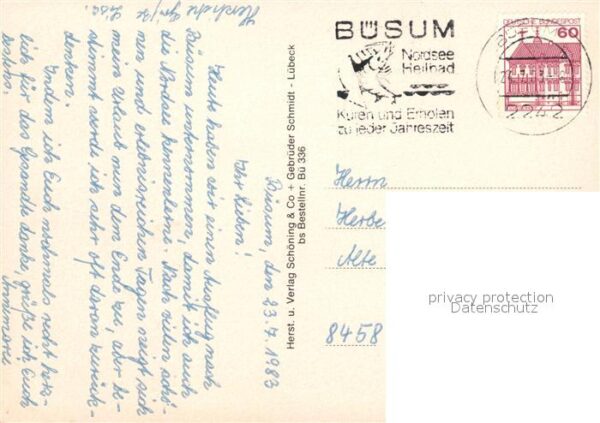 Büsum, den 23.7.1983
Ihr Lieben!
Heute haben wir einen Ausflug nach
Büsum unternommen, damit ich auch
die Nordsee kennenlerne. Nach vielen schö-
nen und erlebnisreichen Tagen neigt sich
mein Urlaub nun dem Ende zu, aber be-
stimmt werde ich sehr oft daran zurück-
denken.
Indem ich Euch nochmals recht herz-
lich für das Gesandte danke, grüße ich Euch
bestens.
Annemarie
Herzliche Grüße
Lisa.
Herst. u. Verlag Schöning & Co + Gebrüder Schmidt - Lübeck
bs Bestellnr. Bü 336
BÜSUM
Nordsee
Heilbad
Kuren und Erholen
zu jeder Jahreszeit
DEUTSCHE BUNDESPOST
60
2242
Herrn
Herbe
Alte
8458
privacy protection
Datenschutz